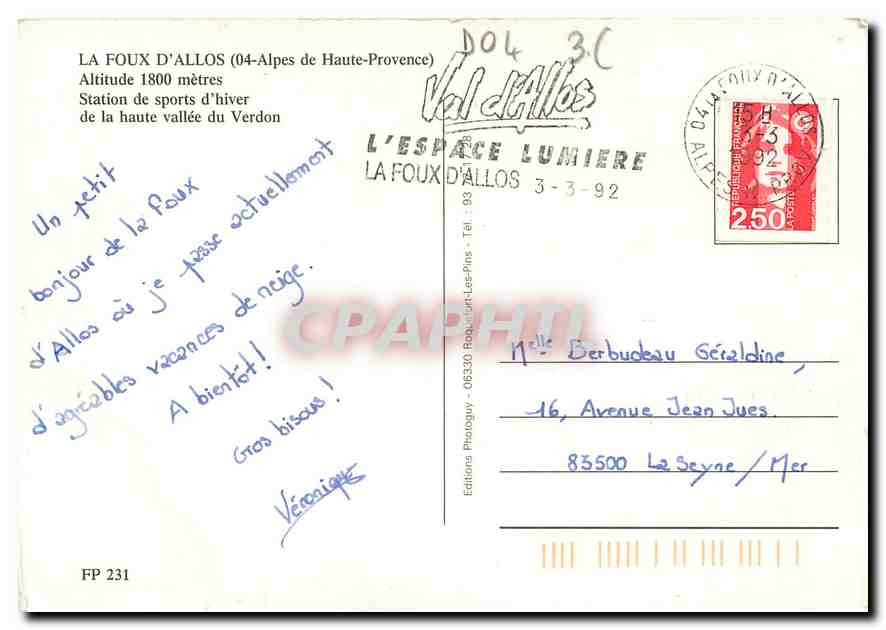 LA FOUX D'ALLOS (04-Alpes de Haute-Provence)
Altitude 1800 mètres
Station de sports d'hiver
de la haute vallée du Verdon
DOL 3.C
Val d'Allos
L'ESPACE LUMIERE
LA FOUX D'ALLOS 3-3-92
04 LA FOUX D'ALLOS
ALPES
15 H
3-3
1992
REPUBLIQUE FRANÇAISE
LA POSTE
2.50
Un petit
bonjour de la Foux
d'Allos où je passe actuellement
d'agréables vacances de neige.
A bientôt!
Gros bisous!
Véronique
Editions Photoguy - 06330 Roquefort-Les-Pins - Tél. : 93
CPAPHIL
Melle Berbudeau Géraldine,
16, Avenue Jean Jues.
83500 La Seyne / Mer
FP 231